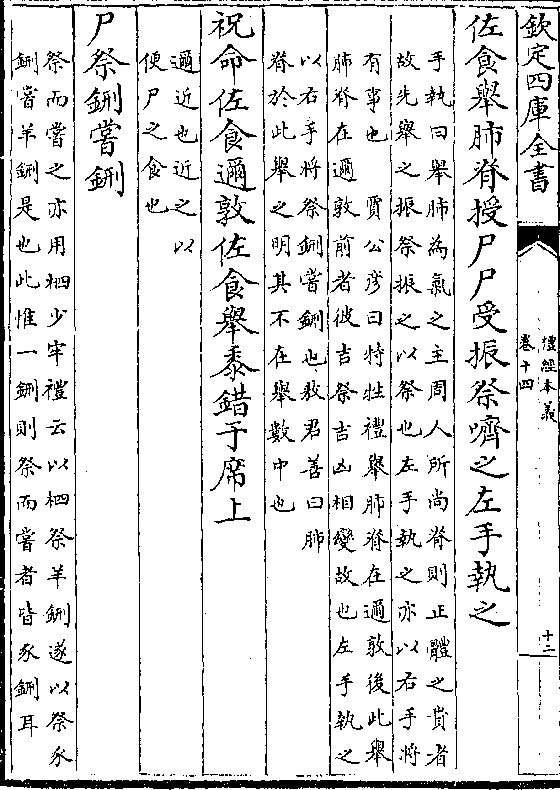 欽定四庫全書
禮經本義
卷十四
十二
佐食舉肺脊授尸尸受振祭嚌之左手執之
手執曰舉肺為氣之主周人所尚脊則正體之貴者
故先舉之振祭振之以祭也左手執之亦以右手將
有事也　賈公彦曰特牲禮舉肺脊在邇敦後此舉
肺脊在邇敦前者彼吉祭吉凶相變故也左手執之
以右手將祭鉶嘗鉶也敖君善曰肺
脊於此舉之明其不在舉數中也
祝命佐食邇敦佐食舉黍錯于席上
邇近也近之以
便尸之食也
尸祭鉶嘗鉶
祭而嘗之亦用柶少牢禮云以柶祭羊鉶遂以祭豕
鉶嘗羊鉶是也此惟一鉶則祭而嘗者皆豕鉶耳